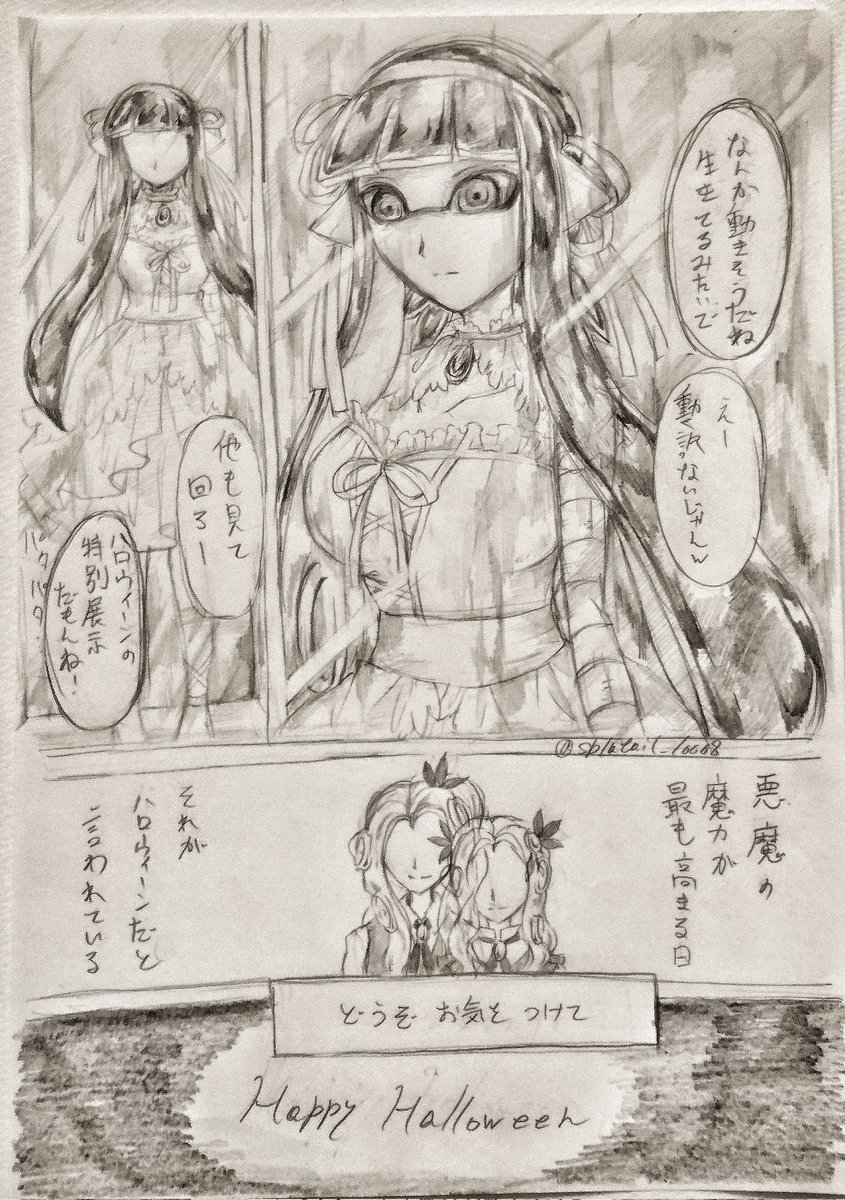 なんか動きそうだね
生きてるみたいで
えー
動く訳ないじゃんw
他も見て
回ろー
ハロウィーンの
特別展示
だもんね!
パタパタ..
悪魔の
魔力が
最も高まる日
それが
ハロウィーンだと
言われている
どうぞ お気を つけて
Happy Halloween